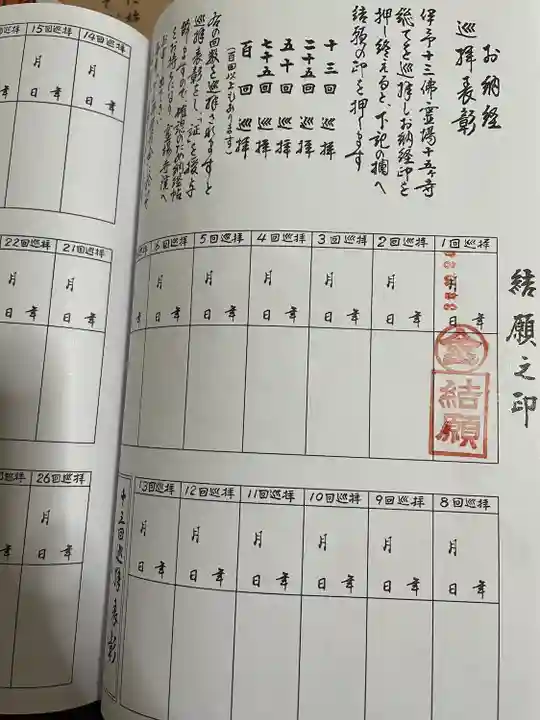 お納経
巡拝表彰
伊予十三佛霊場十五ヶ寺
総てを巡拝しお納経印を
押し終えると、下記の欄へ
結願の印を押します
十三回巡拝
二十五回巡拝
五十回巡拝
七十五回巡拝
百回巡拝
(百回以上もあります)
右の回数を巡拝されますと
巡拝表彰をし、「証」を授与
結願之印
1回巡拝
2回巡拝
3回巡拝
4回巡拝
5回巡拝
6回巡拝
年月日
年月日
年月日
年月日
年月日
年月日
結願
8回巡拝
9回巡拝
10回巡拝
11回巡拝
12回巡拝
13回巡拝
年月日
年月日
年月日
年月日
年月日
年月日
十三回巡拝表彰
14回巡拝
15回巡拝
年月日
年月日
21回巡拝
22回巡拝
年月日
年月日
26回巡拝
年月日